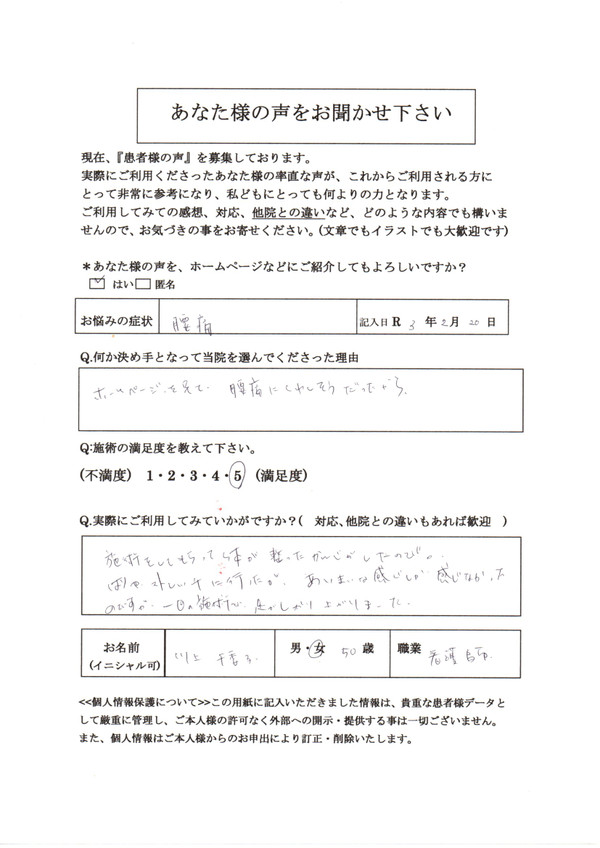 あなた様の声をお聞かせ下さい
現在、『患者様の声』を募集しております。
実際にご利用くださったあなた様の率直な声が、これからご利用される方に
とって非常に参考になり、私どもにとっても何よりの力となります。
ご利用してみての感想、対応、他院との違いなど、どのような内容でも構いま
せんので、お気づきの事をお寄せください。(文章でもイラストでも大歓迎です)
＊あなた様の声を、ホームページなどにご紹介してもよろしいですか？
はい 匿名
お悩みの症状 腰痛 記入日 R 3 年 2 月 20 日
Q.何か決め手となって当院を選んでくださった理由
ホームページを見て、腰痛にくわしそうだったから。
Q:施術の満足度を教えて下さい。
(不満度) 1・2・3・4・5 (満足度)
Q.実際にご利用してみていかがですか？( 対応、他院との違いもあれば歓迎 )
施術をしてもらって体が整ったかんじがしたので
に行ったが、あいまいな感じしか感じなかった
のですが、一回の施術で、足がしっかり上がりました。
お名前 川上 千香子 男・女 50 歳 職業 看護師
(イニシャル可)
<<個人情報保護について>>この用紙に記入いただきました情報は、貴重な患者様データと
して厳重に管理し、ご本人様の許可なく外部への開示・提供する事は一切ございません。
また、個人情報はご本人様からのお申出により訂正・削除いたします。